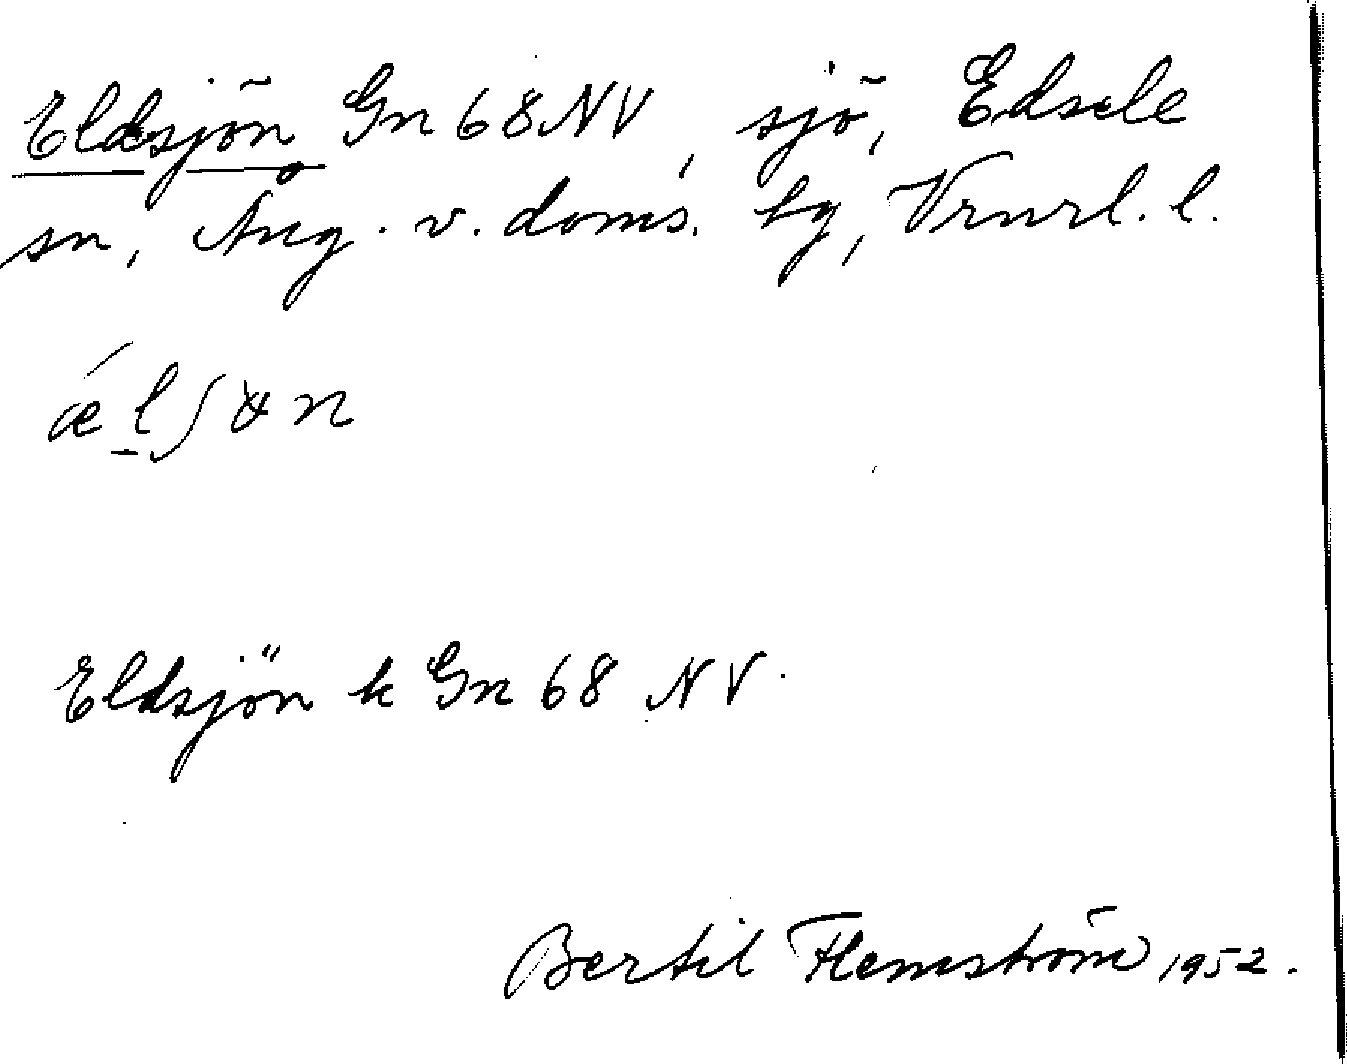 Eldsjön Gn 68 NV, sjö, Edsele
sn, Ång. v. doms. hg, Vrnrl. l.
ǽl̠ʃɵn
Eldsjön k Gn 68 NV.
Bertil Flemström 1952.